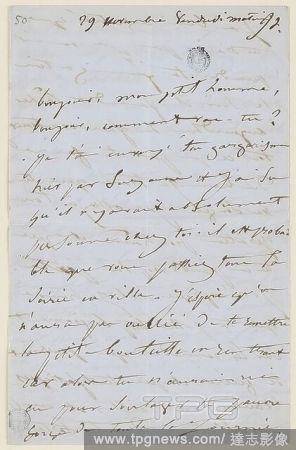 50.
29 novembre vendredi matin 9 h.
Bonjour, mon petit homme,
bonjour, comment vas-tu?
Je t'ai envoyé ton garçon
hier par Suzanne et j'ai su
qu'il n'y avait absolument
personne chez toi. il est proba
ble que vous passiez tous la
soirée en ville. J'espère qu'on
n'aura pas oublié de te remettre
la petite bouteille en rentrant
car alors tu n'aurais
eu pour soulager ta pauvre
gorge de toute la
TPG
www.tpgnews.com/ 達志影像